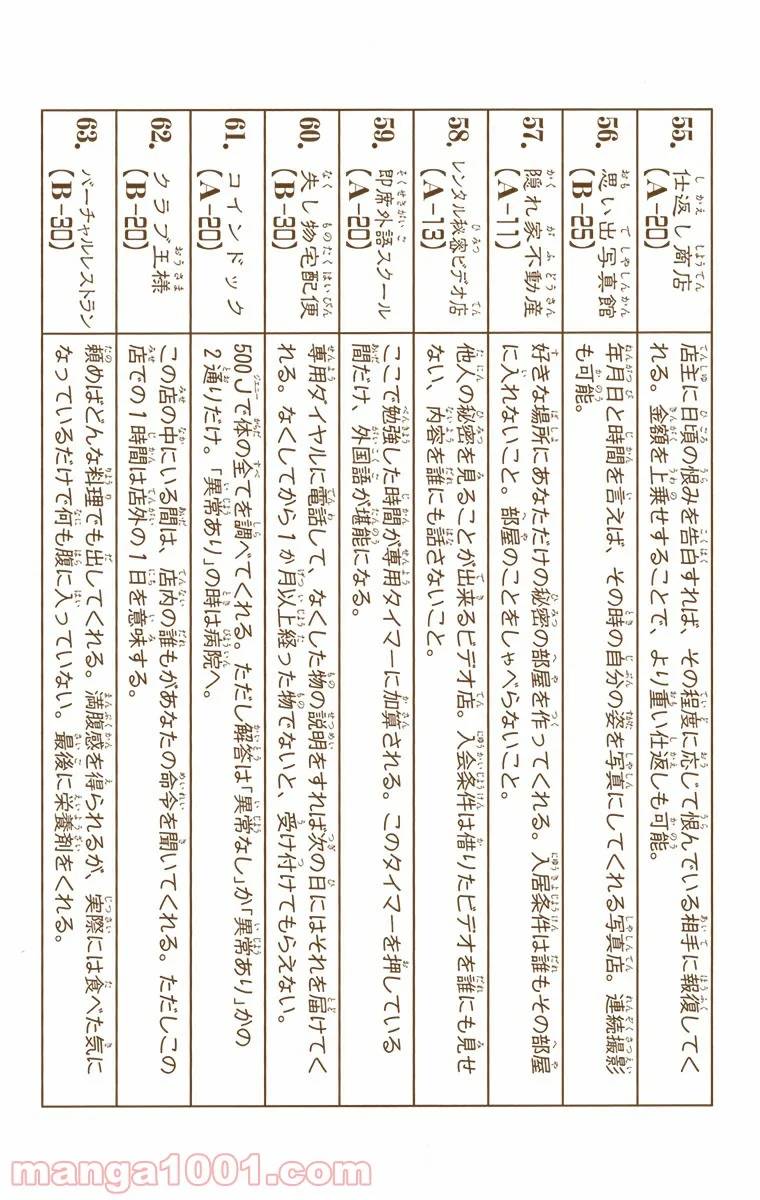 55. 仕返し商店
(A-20)
店主に日頃の恨みを告白すれば、その程度に応じて恨んでいる相手に報復してく
れる。金額を上乗せすることで、より重い仕返しも可能。
56. 思い出写真館
(B-25)
年月日と時間を言えば、その時の自分の姿を写真にしてくれる写真店。連続撮影
も可能。
57. 隠れ家不動産
(A-11)
好きな場所にあなただけの秘密の部屋を作ってくれる。入居条件は誰もその部屋
に入れないこと。部屋のことをしゃべらないこと。
58. レンタル秘密ビデオ店
(A-13)
他人の秘密を見ることが出来るビデオ店。入会条件は借りたビデオを誰にも見せ
ない、内容を誰にも話さないこと。
59. 即席外語スクール
(A-20)
ここで勉強した時間が専用タイマーに加算される。このタイマーを押している
間だけ、外国語が堪能になる。
60. 失し物宅配便
(B-30)
専用ダイヤルに電話して、なくした物の説明をすれば次の日にはそれを届けてく
れる。なくしてから1か月以上経った物でないと、受け付けてもらえない。
61. コインドック
(A-20)
500Jで体の全てを調べてくれる。ただし解答は「異常なし」か「異常あり」かの
2通りだけ。「異常あり」の時は病院へ。
62. クラブ王様
(B-20)
この店の中にいる間は、店内の誰もがあなたの命令を聞いてくれる。ただしこの
店での1時間は店外の1日を意味する。
63. バーチャルレストラン
(B-30)
頼めばどんな料理でも出してくれる。満腹感を得られるが、実際には食べた気に
なっているだけで何も腹に入っていない。最後に栄養剤をくれる。
manga1001.com